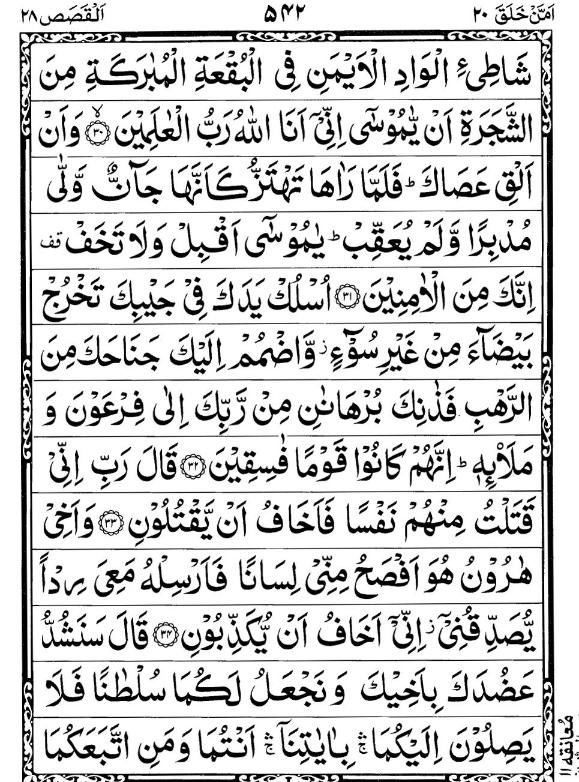 اَمَّنْ خَلَقَ ۲۰ ۵۴۲ اَلْقَصَص ۲۸
شَاطِیِٔ الْوَادِ الْاَیْمَنِ فِی الْبُقْعَةِ الْمُبٰرَكَةِ مِنَ
الشَّجَرَةِ اَنْ یّٰمُوْسٰۤی اِنِّیْۤ اَنَا اللّٰهُ رَبُّ الْعٰلَمِیْنَ ﴿۳۰﴾ۙ وَاَنْ
اَلْقِ عَصَاكَ ؕ فَلَمَّا رَاٰهَا تَهْتَزُّ كَاَنَّهَا جَآنٌّ وَّلّٰی
مُدْبِرًا وَّلَمْ یُعَقِّبْ ؕ یٰمُوْسٰۤی اَقْبِلْ وَلَا تَخَفْ قف
اِنَّكَ مِنَ الْاٰمِنِیْنَ ﴿۳۱﴾ اُسْلُكْ یَدَكَ فِیْ جَیْبِكَ تَخْرُجْ
بَیْضَآءَ مِنْ غَیْرِ سُوْٓءٍ ز وَّاضْمُمْ اِلَیْكَ جَنَاحَكَ مِنَ
الرَّهْبِ فَذٰنِكَ بُرْهَانٰنِ مِنْ رَّبِّكَ اِلٰی فِرْعَوْنَ وَ
مَلَا۟ئِهٖ ؕ اِنَّهُمْ كَانُوْا قَوْمًا فٰسِقِیْنَ ﴿۳۲﴾ قَالَ رَبِّ اِنِّیْ
قَتَلْتُ مِنْهُمْ نَفْسًا فَاَخَافُ اَنْ یَّقْتُلُوْنِ ﴿۳۳﴾ وَاَخِیْ
هٰرُوْنُ هُوَ اَفْصَحُ مِنِّیْ لِسَانًا فَاَرْسِلْهُ مَعِیَ رِدْاً
یُّصَدِّقُنِیْۤ ز اِنِّیْۤ اَخَافُ اَنْ یُّكَذِّبُوْنِ ﴿۳۴﴾ قَالَ سَنَشُدُّ
عَضُدَكَ بِاَخِیْكَ وَنَجْعَلُ لَكُمَا سُلْطٰنًا فَلَا
یَصِلُوْنَ اِلَیْكُمَا ۛۚ بِاٰیٰتِنَاۤ ۛۚ اَنْتُمَا وَمَنِ اتَّبَعَكُمَا
معانقه ۱۱